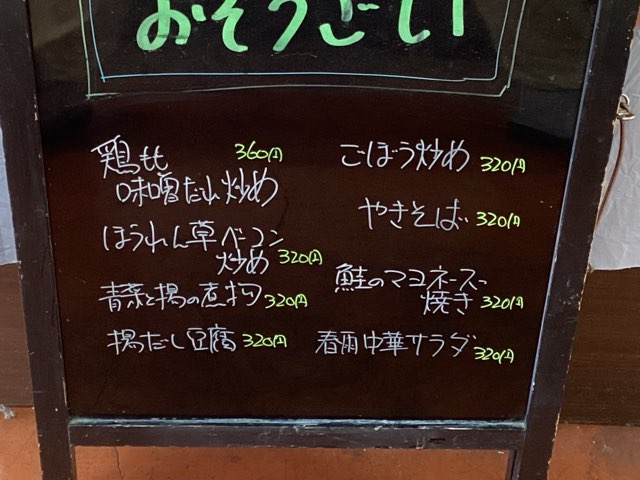 おそうざい
鶏もも 360円
味噌だれ炒め
ほうれん草ベーコン
炒め 320円
青菜と揚の煮物 320円
揚だし豆腐 320円
ごぼう炒め 320円
やきそば 320円
鮭のマヨネーズ
焼き 320円
春雨中華サラダ 320円